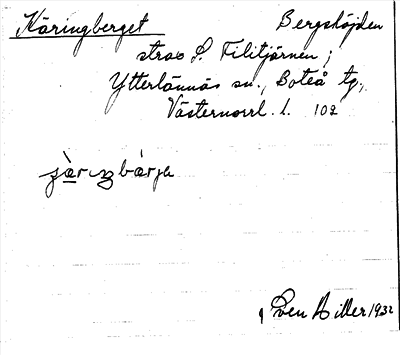 Käringberget Bergshöjden
strax S. Filitjärnen;
Ytterlännäs sn., Boteå tg.,
Västernorrl. l. 102
Sven Hiller 1932